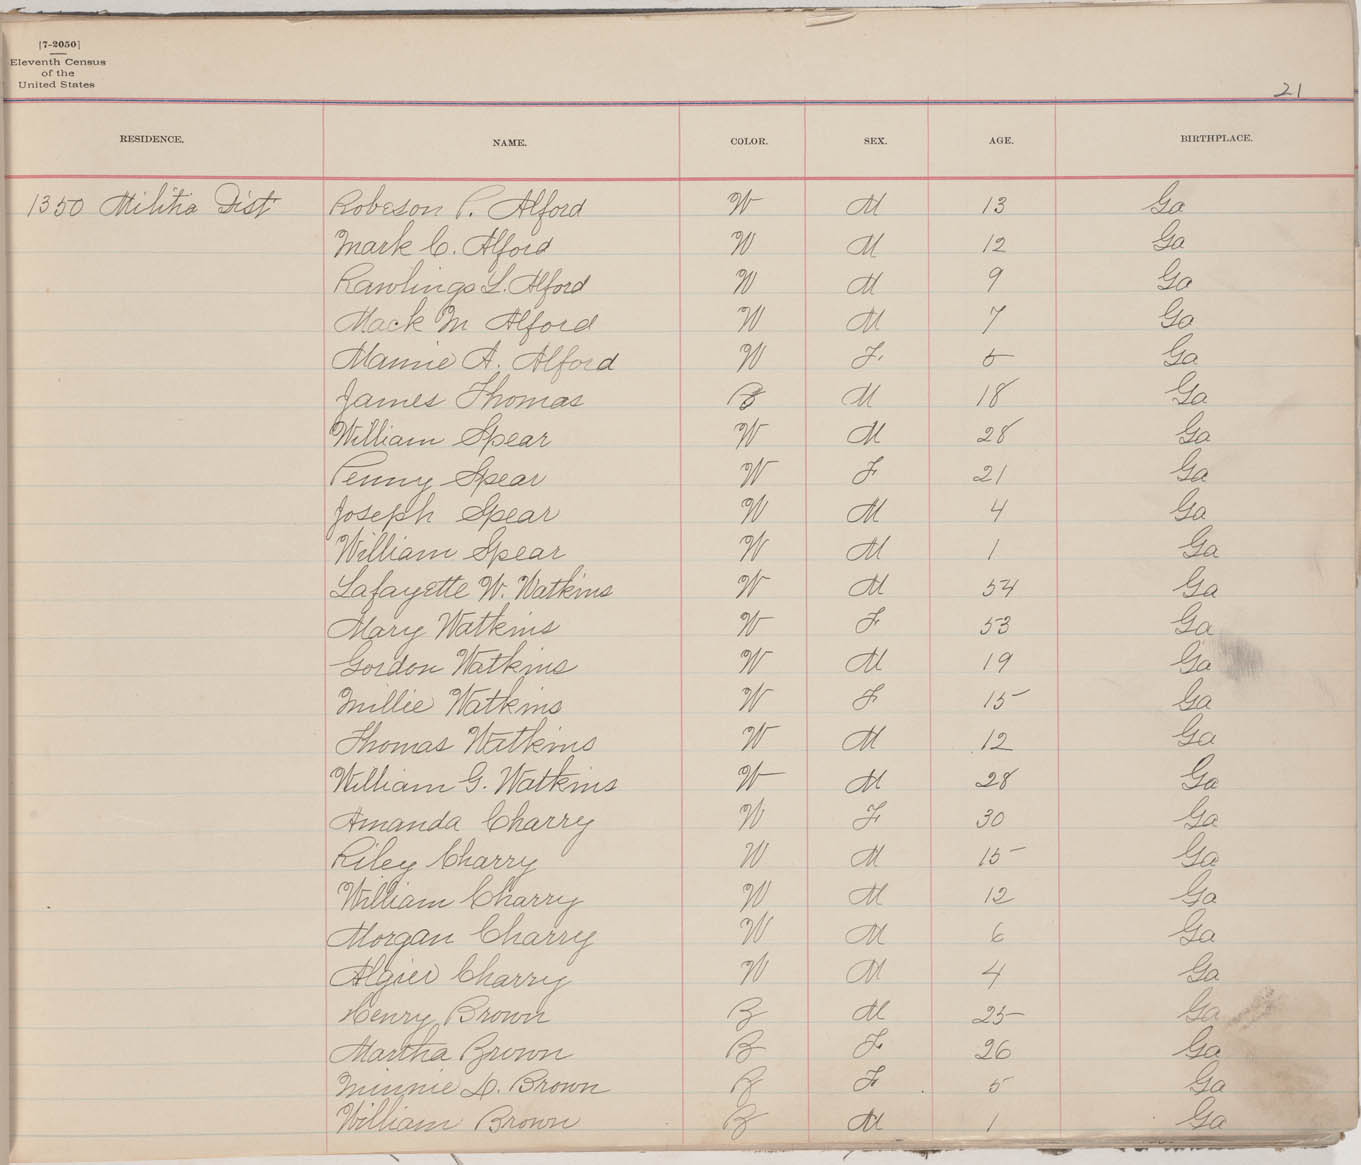 [7-2050]
Eleventh Census
of the
United States
21
RESIDENCE. NAME. COLOR. SEX. AGE. BIRTHPLACE.
1350 Militia Dist Robeson P. Alford W M 13 Ga
Mark C. Alford W M 12 Ga
Rawlings L. Alford W M 9 Ga
Mack M Alford W M 7 Ga
Mamie A. Alford W F 5 Ga
James Thomas B M 18 Ga
William Spear W M 28 Ga
Penny Spear W F 21 Ga
Joseph Spear W M 4 Ga
William Spear W M 1 Ga
Lafayette W. Watkins W M 54 Ga
Mary Watkins W F 53 Ga
Gordon Watkins W M 19 Ga
Millie Watkins W F 15 Ga
Thomas Watkins W M 12 Ga
William G. Watkins W M 28 Ga
Amanda Charry W F 30 Ga
Riley Charry W M 15 Ga
William Charry W M 12 Ga
Morgan Charry W M 6 Ga
Algier Charry W M 4 Ga
Henry Brown B M 25 Ga
Martha Brown B F 26 Ga
Minnie D. Brown B F 5 Ga
William Brown B M 1 Ga